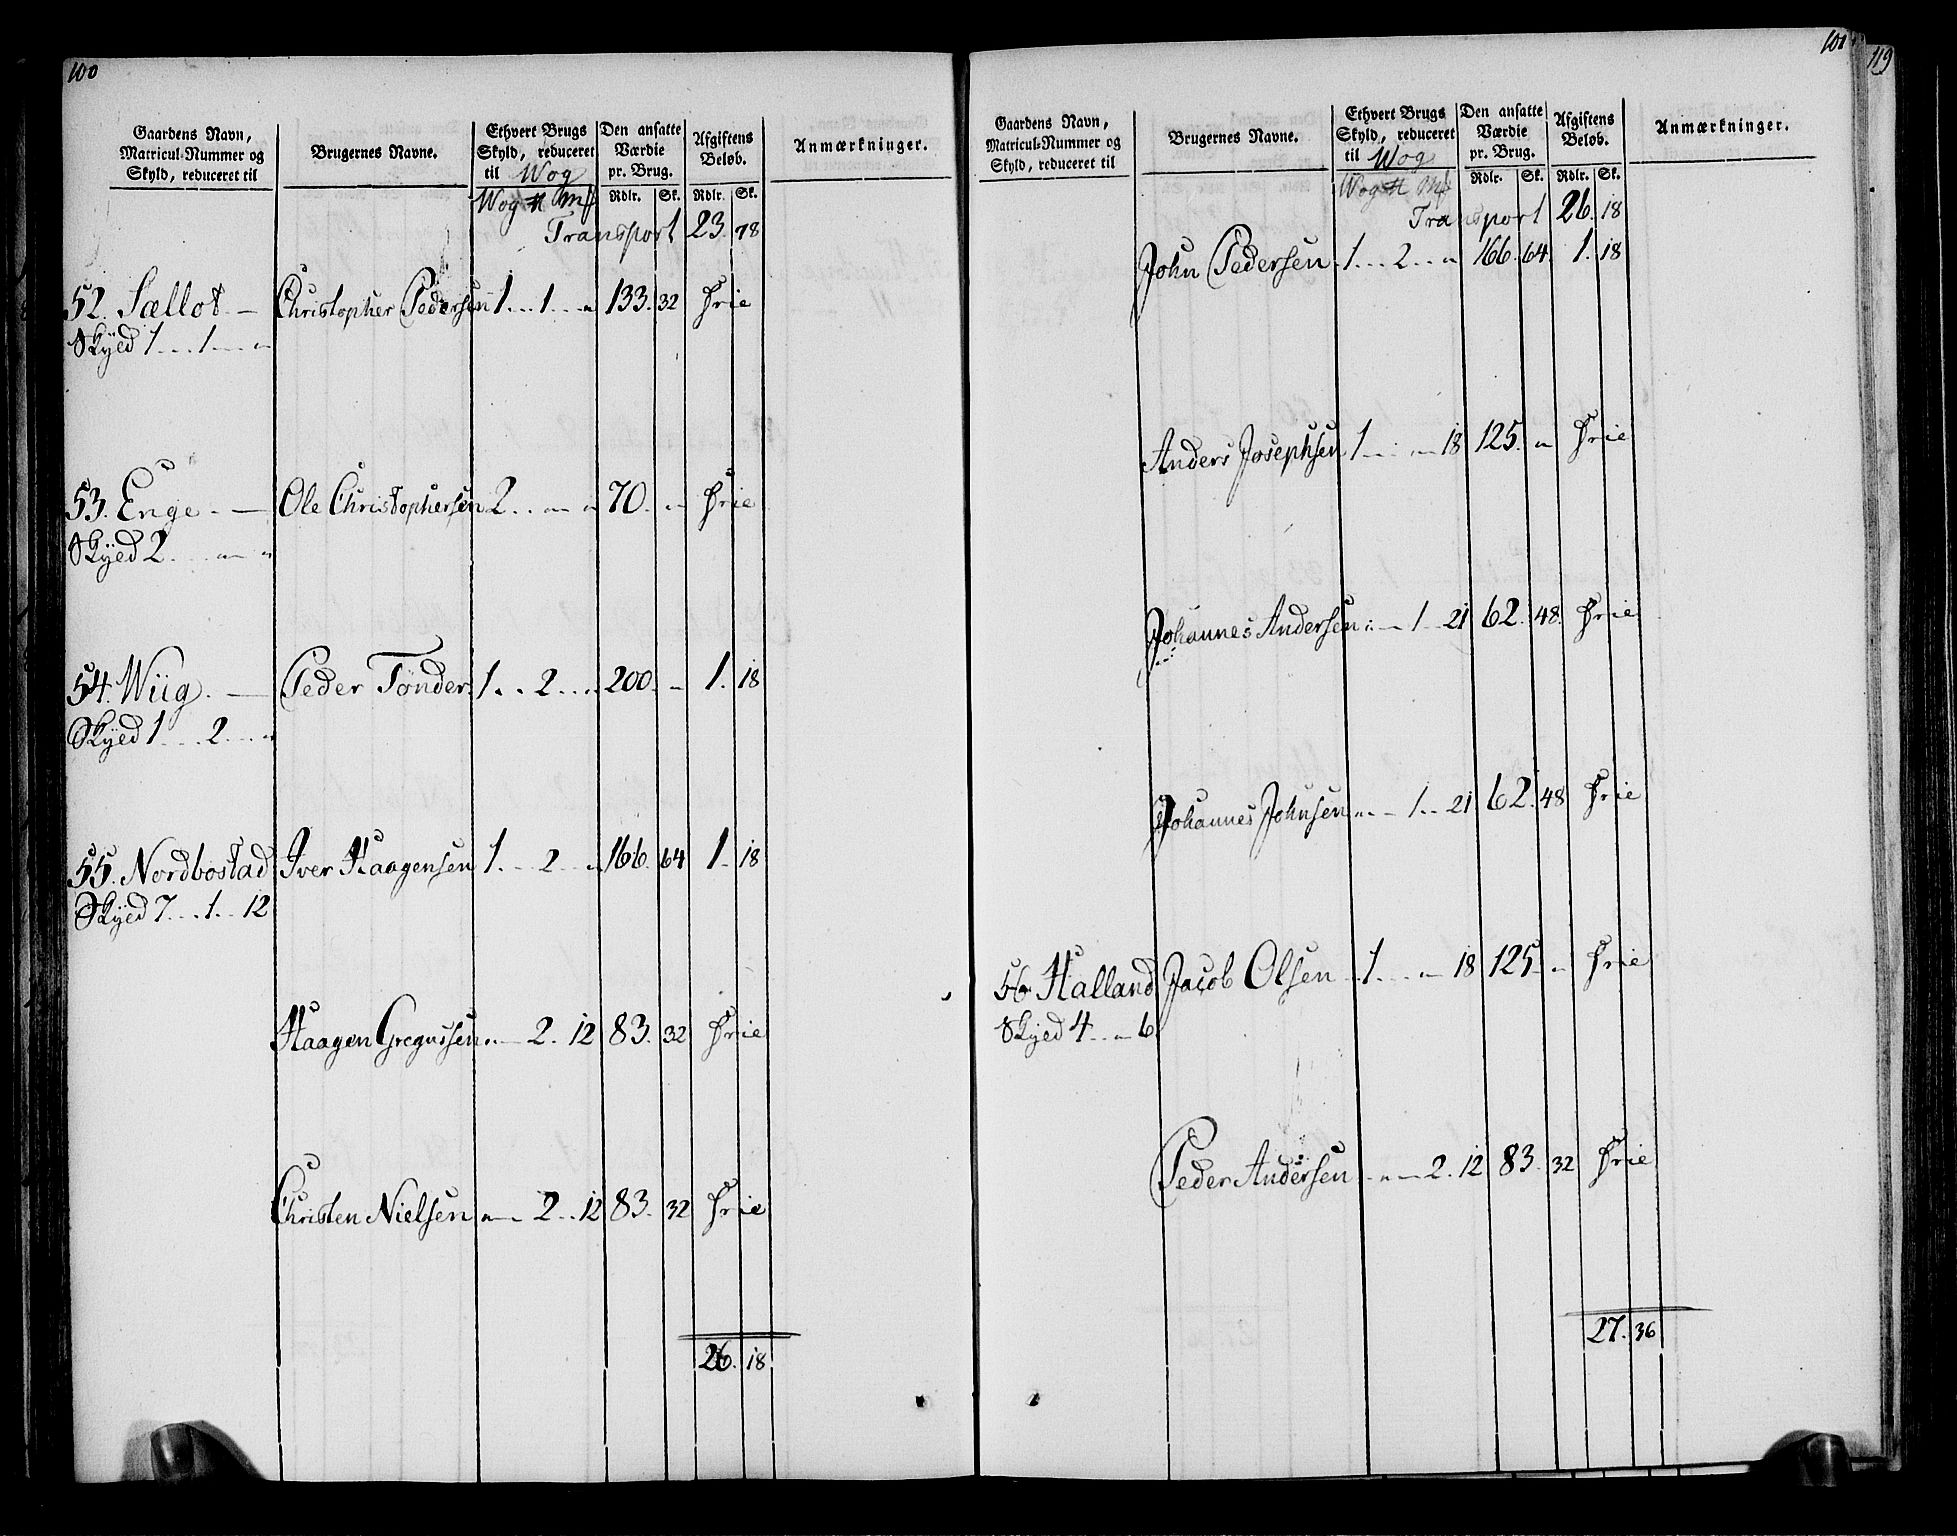 100
Gaardens Navn, Matricul-Nummer og Skyld, reduceret til
Brugernes Navne.
Ethvert Brugs Skyld, reduceret til Wog
Den ansatte Værdie pr. Brug.
Afgiftens Beløb.
Anmærkninger.
Wog ℔ Mk Rdlr. Sk. Rdlr. Sk.
Transport 23. 78
52. Sællot — Christopher Pedersen 1 . . . 1 . . „ 133. 32 Frie
Skyed 1 . . . 1 . . . „
53. Enge — Ole Christophersen 2 . . „ „ 70. „ Frie
Skyed 2 . . . „ „
54. Wiig. — Peder Tönder 1 . . 2 . . „ 200. „ 1. 18
Skyed 1 . . . 2 . . . „
55. Nordbostad Iver Haagensen 1 . . 2 . . „ 166. 64 1. 18
Skyed 7 . . . 1 . . 12
Haagen Gregussen „ — 2. 12 83. 32 Frie
Christen Nielsen „ — 2 . . 12 83. 32 Frie
26. 18
101
119
Gaardens Navn, Matricul-Nummer og Skyld, reduceret til
Brugernes Navne.
Ethvert Brugs Skyld, reduceret til Wog
Den ansatte Værdie pr. Brug.
Afgiftens Beløb.
Anmærkninger.
Wog ℔ Mk Rdlr. Sk. Rdlr. Sk.
Transport 26. 18
John Pedersen 1 . . . 2 . . „ 166. 64 1. 18
Anders Josephsen 1 . . . „ 18 125. „ Frie
Johannes Andersen „ — 1 . . 21 62. 48 Frie
Johannes Johnsen „ — 1 . . 21 62. 48 Frie
56 Halland Jacob Olsen 1 . . . „ 18 125. „ Frie
Skyed 4 . . „ 6
Peder Andersen „ — 2. 12 83. 32 Frie
27. 36